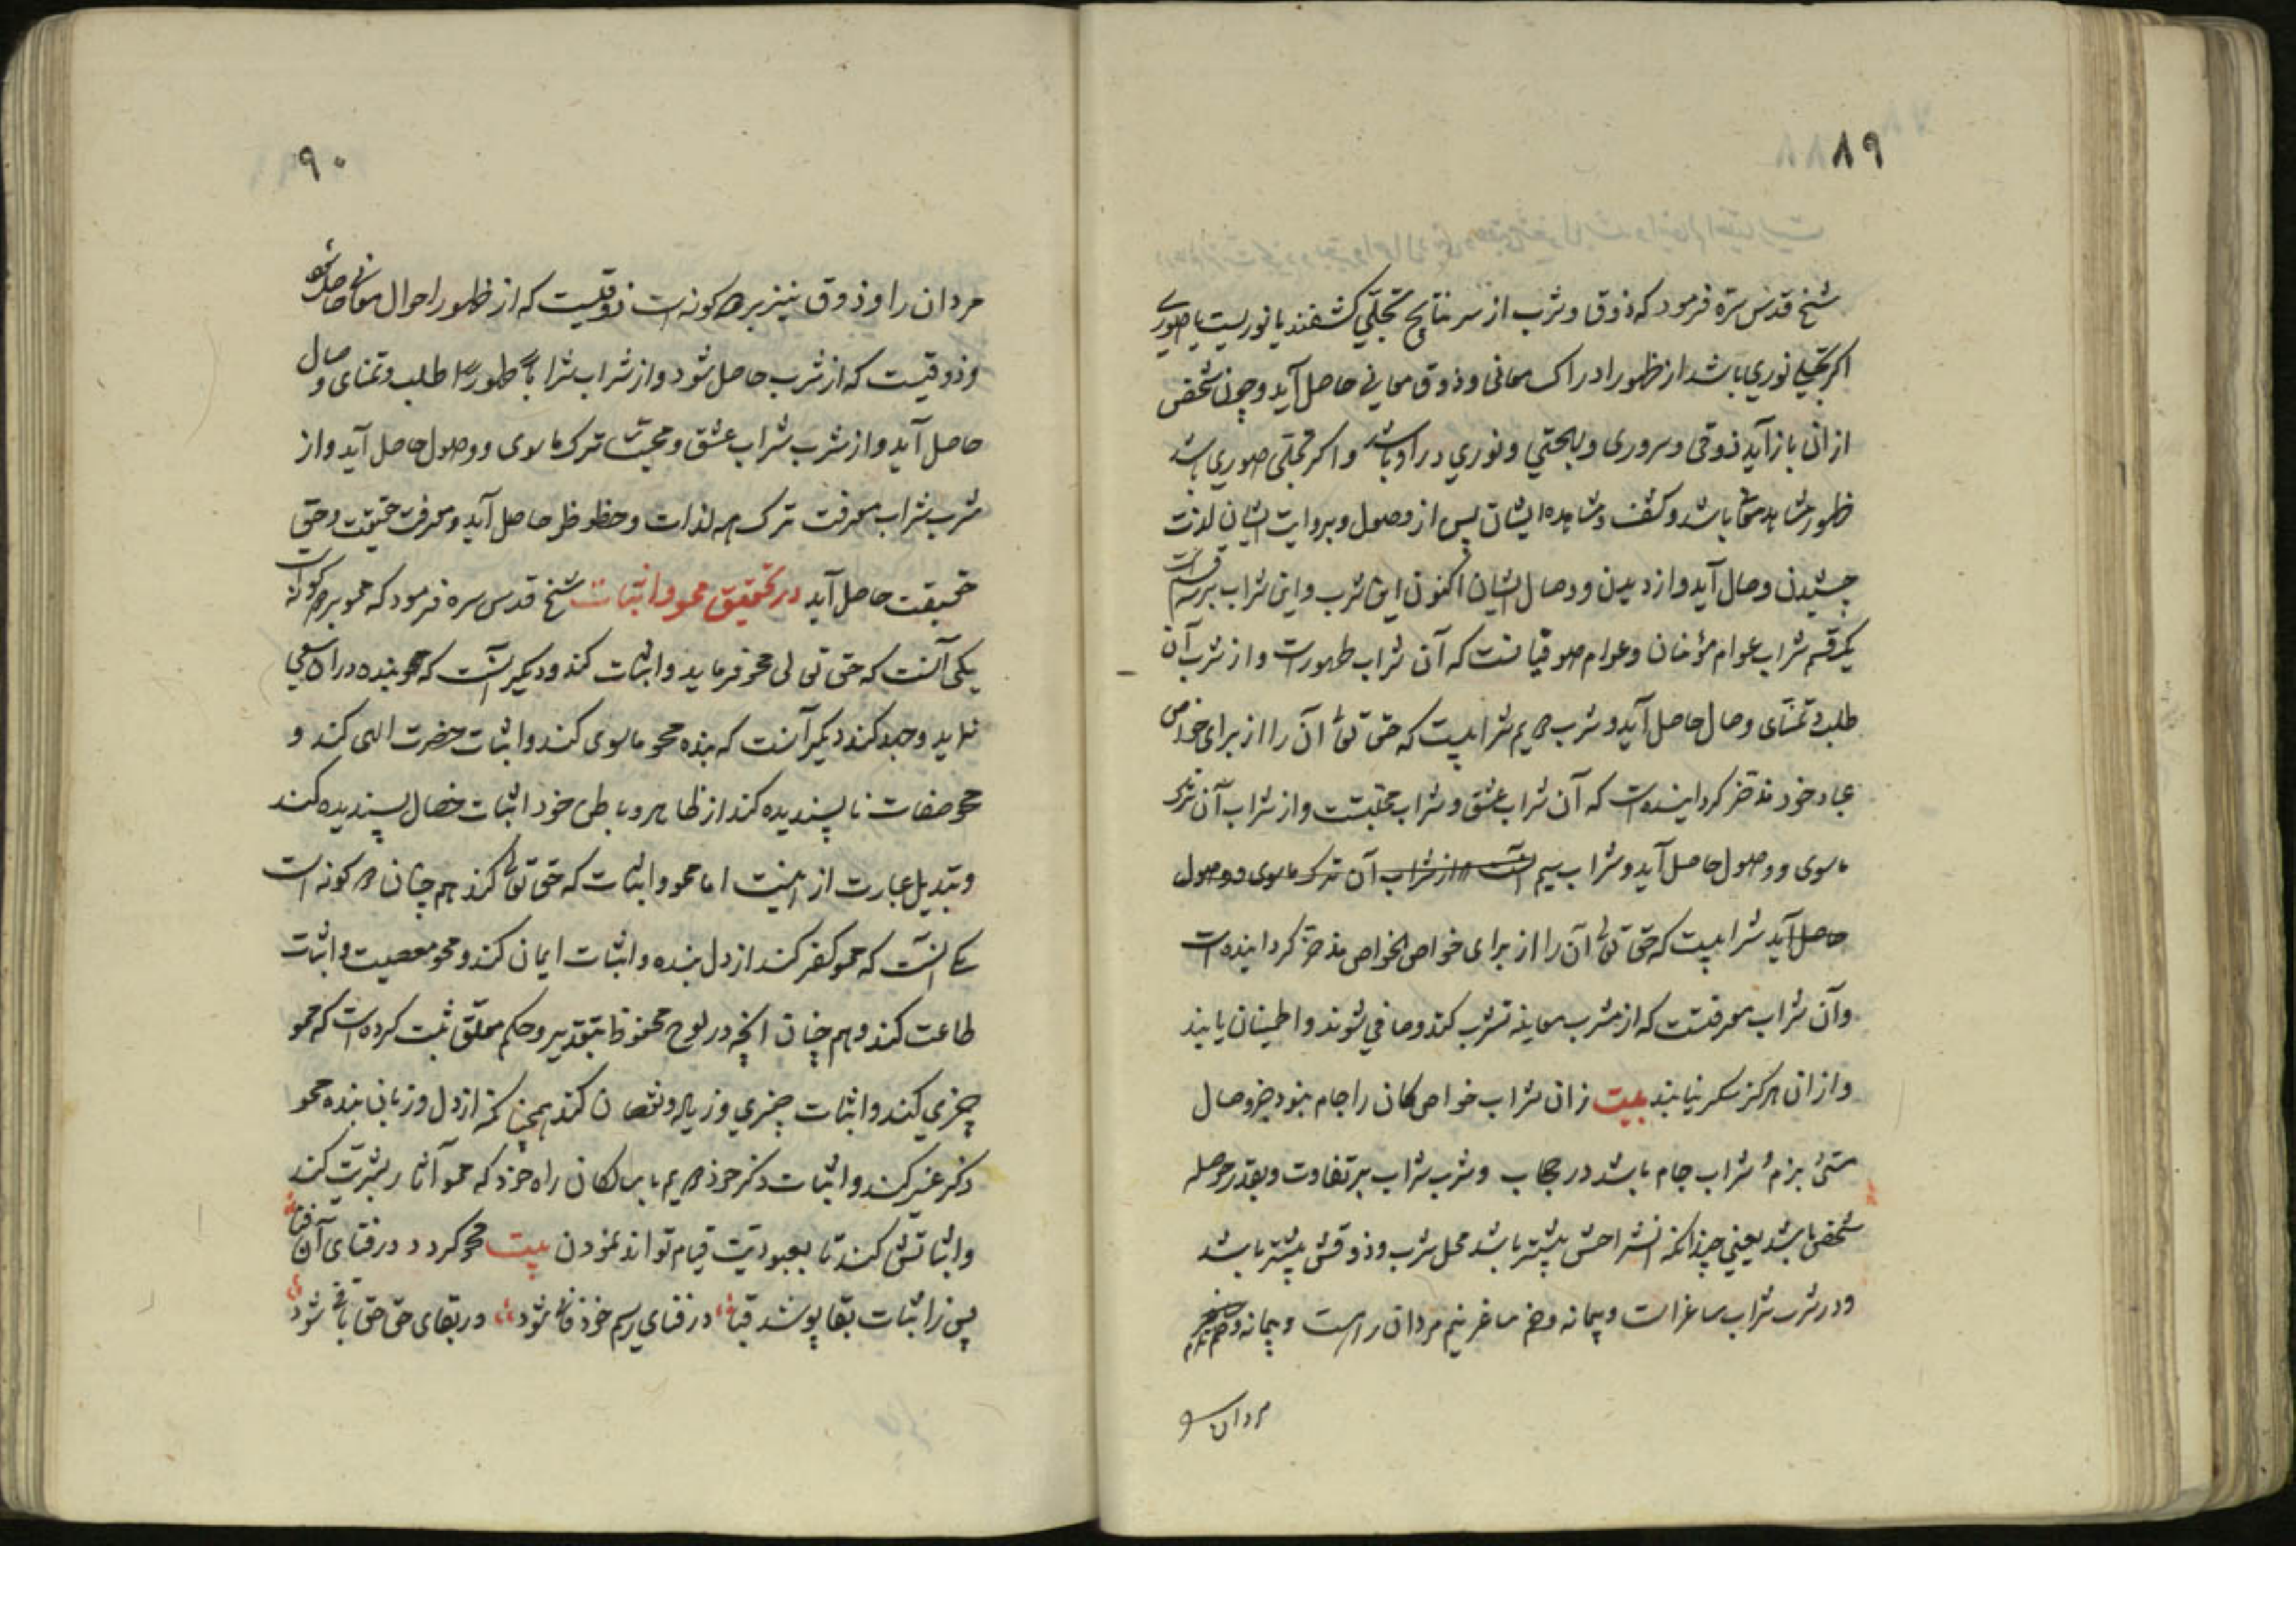 ۸۹
شیخ قدس سره فرمود که ذوق و شرب از سر نتایج تجلی کشفند یا نوریست یا صوری
اکر تجلی نوری باشد از ظهور ادراک معانی و ذوق معانی حاصل آید و چون شخص
از ان باز آید ذوقی و سروری و بهجتی و نوری در او باشد و اکر تجلی صوری باشد
ظهور مشاهد باشد و کشف و مشاهده ایشان پس از وصول و بروایت ایشان لذت
چشیدن وصال آید و از دیدن و وصال ایشان اکنون این شرب و این شراب بر سه قسم است
یکقسم شراب عوام مؤمنان و عوام صوفیانست که آن شراب طهور است و از شرب آن
طلب و تمنای وصال حاصل آید و شرب دویم شرابیست که حق تعالی آن را از برای خواص
عباد خود مدخر کردانیده است که آن شراب عشق و شراب محبتست و از شراب آن ترک
ماسوی و وصول حاصل آید و شراب سیم آنست و از شراب آن ترک ماسوی و وصول
حاصل آید شرابیست که حق تعالی آن را از برای خواص الخواص مدخر کردانیده است
و آن شراب معرفتست که از مشرب معاینه تشرب کند و صافی شوند و اطمینان یابند
و از ان هرکز سکر نیابند بیت زان شراب خواص کان را جام نبود جز وصال
بزم شراب جام باشد در حجاب و شرب شراب بر تفاوت و بقدر حوصله
شخص باشد یعنی چندانکه انشراحش بیشتر باشد محل شرب و ذوقش بیشتر باشد
و در شرب شراب ساغر است و پیمانه و خم ساغر نیم مردان راست و پیمانه و خم
مردان
۹۰
مردان را و ذوق نیز بر دو کونه است ذوقیست که از ظهور احوال معانی حاصل شود
و ذوقیست که از شرب حاصل شود و از شراب شرابا طهورا طلب و تمنای وصال
حاصل آید و از شرب شراب عشق و محبت ترک ماسوی و وصول حاصل آید و از
شرب شراب معرفت ترک همه لذات و حظوظ حاصل آید و معرفت حقیقت و حق
حقیقت حاصل آید در تحقیق محو و اثبات شیخ قدس سره فرمود که محو بر دو کونه است
یکی آنست که حق تعالی محو فرماید و اثبات کند و دیکر آنست که بنده در ان سعی
نماید و جهد کند دیکر آنست که بنده محو ماسوی کند و اثبات حضرت الهی کند و
محو صفات ناپسندیده کند از ظاهر و باطن خود اثبات خصال پسندیده کند
و تبدیل عبارت از اینست اما محو و اثبات که حق تعالی کند هم چنان دو کونه است
یکی آنست که محو کفر کند از دل بنده و اثبات ایمان کند و محو معصیت و اثبات
طاعت کند و هم چنان انچه در لوح محفوظ بتقدیر و حکم معلق ثبت کرده است که محو
چیزی کند و اثبات چیزی و زیاده و نقصان کند همچنانکه از دل و زبان بنده محو
ذکر غیر کند و اثبات ذکر خود دویم با سالکان راه خود که محو آثار بشریت کند
و اثباتش کند تا بعبودیت قیام تواند نمودن بیت محو کردد در فنای آن فنا
پس ز اثبات بقا پوشد قبا در فنای رسم خود فانی شود در بقای حق حق باقی شود